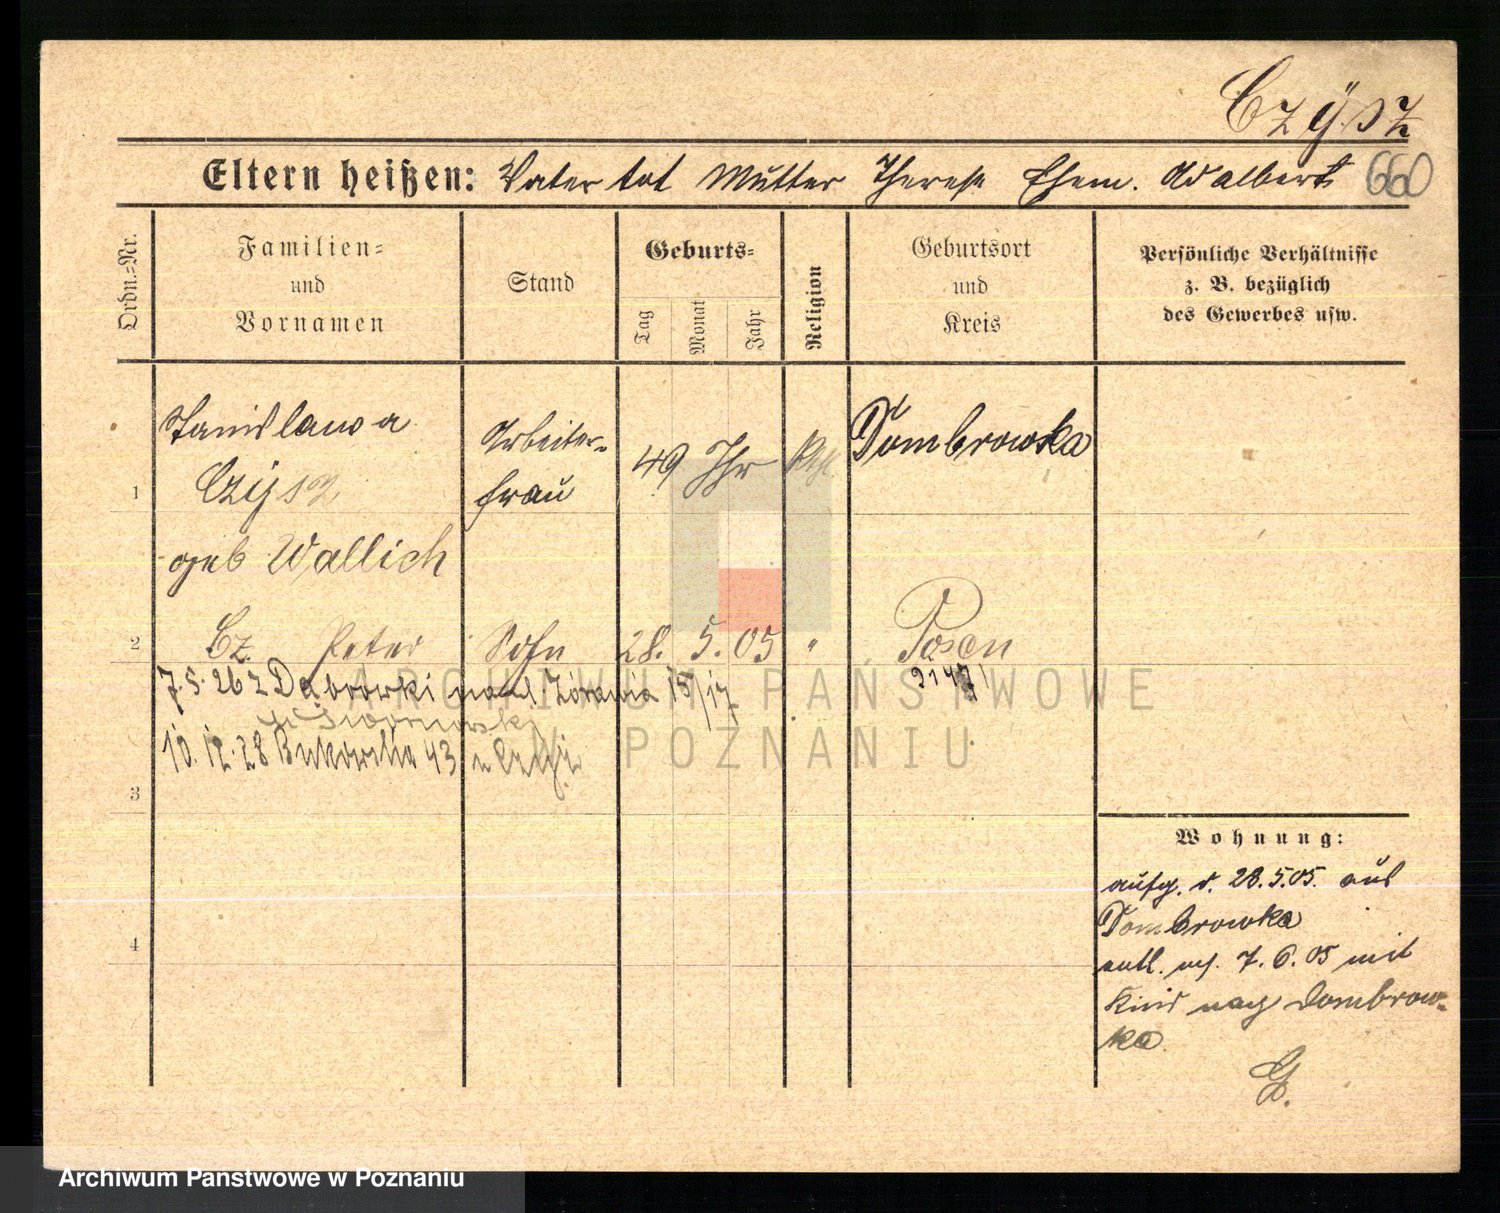 Czÿsz
Eltern heißen: Vater tot Mutter Therese Ehem. Adalbert 660
Ordn.=Nr.
Familien=
und
Vornamen
Stand
Geburts=
Tag
Monat
Jahr
Religion
Geburtsort
und
Kreis
Persönliche Verhältnisse
z. B. bezüglich
des Gewerbes usw.
1
Stanislawa
Czÿsz
geb Wallich
Arbeiter=
frau
49 Jhr
Kth.
Dombrowka
2
Cz. Peter
Sohn
28. 5. 05
"
Posen
7.5.26 z Dąbrowki 15/17
10.12.28 43
3
4
Wohnung:
aufg. d. 28.5.05. aus
Dombrowka
entl. 7. 6. 05 mit
Kind nach Dombrow=
ka
G.
ARCHIWUM PAŃSTWOWE
W POZNANIU
Archiwum Panstwowe w Poznaniu